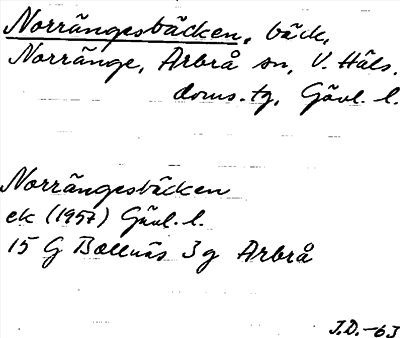 Norrängesbäcken, bäck,
Norränge, Arbrå sn, V. Häls.
doms. tg, Gävl. l.
Norrängesbäcken
ek (1957) Gävl. l.
15 G Bollnäs 3g Arbrå
J.D.-63